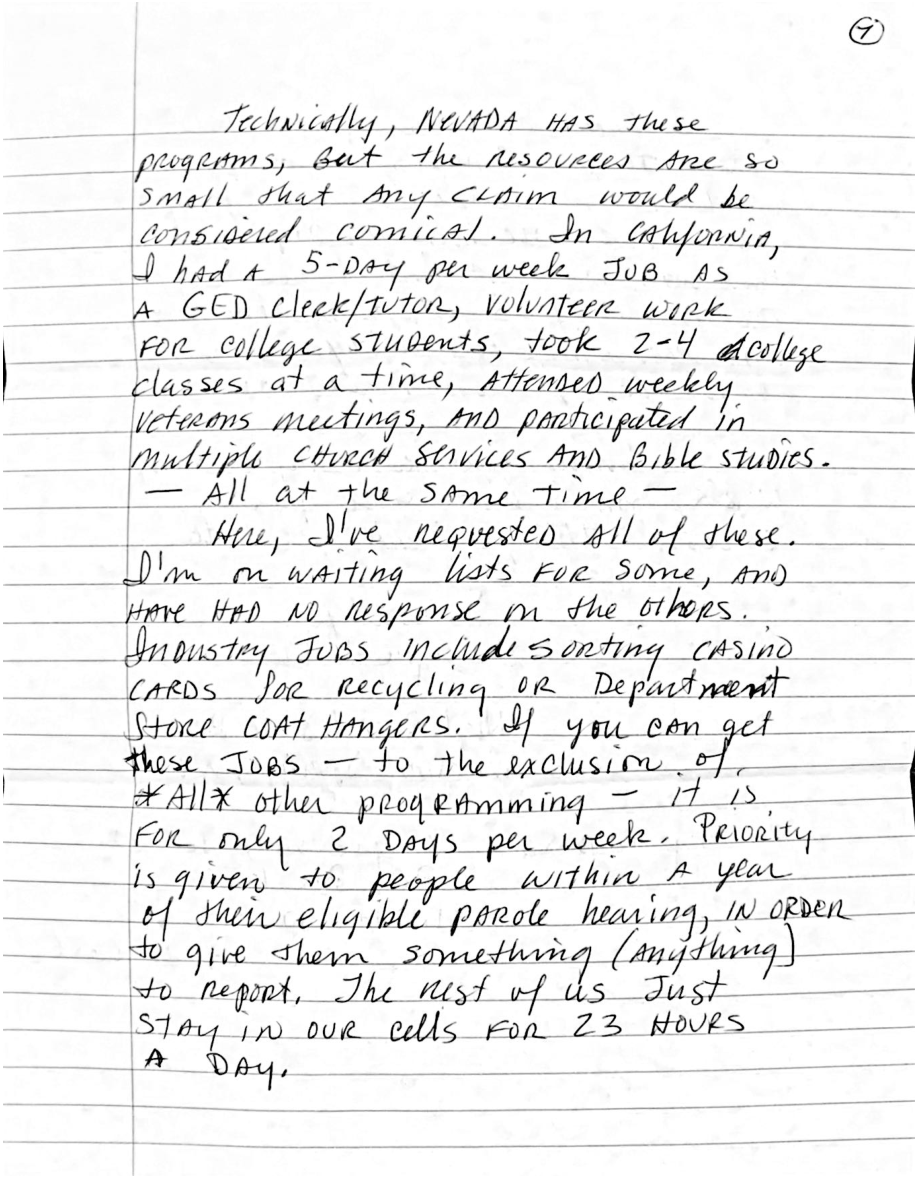 9
Technically, Nevada has these
programs, but the resources are so
small that any claim would be
considered comical. In California,
I had a 5-day per week job as
a GED clerk/tutor, volunteer work
for college students, took 2-4 college
classes at a time, attended weekly
veterans meetings, and participated in
multiple church services and Bible studies.
— All at the same time —
Here, I've requested all of these.
I'm on waiting lists for some, and
have had no response on the others.
Industry jobs include sorting casino
cards for recycling or department
store coat hangers. If you can get
these jobs — to the exclusion of
*All* other programming — it is
for only 2 days per week. Priority
is given to people within a year
of their eligible parole hearing, in order
to give them something (anything)
to report. The rest of us just
stay in our cells for 23 hours
a day.